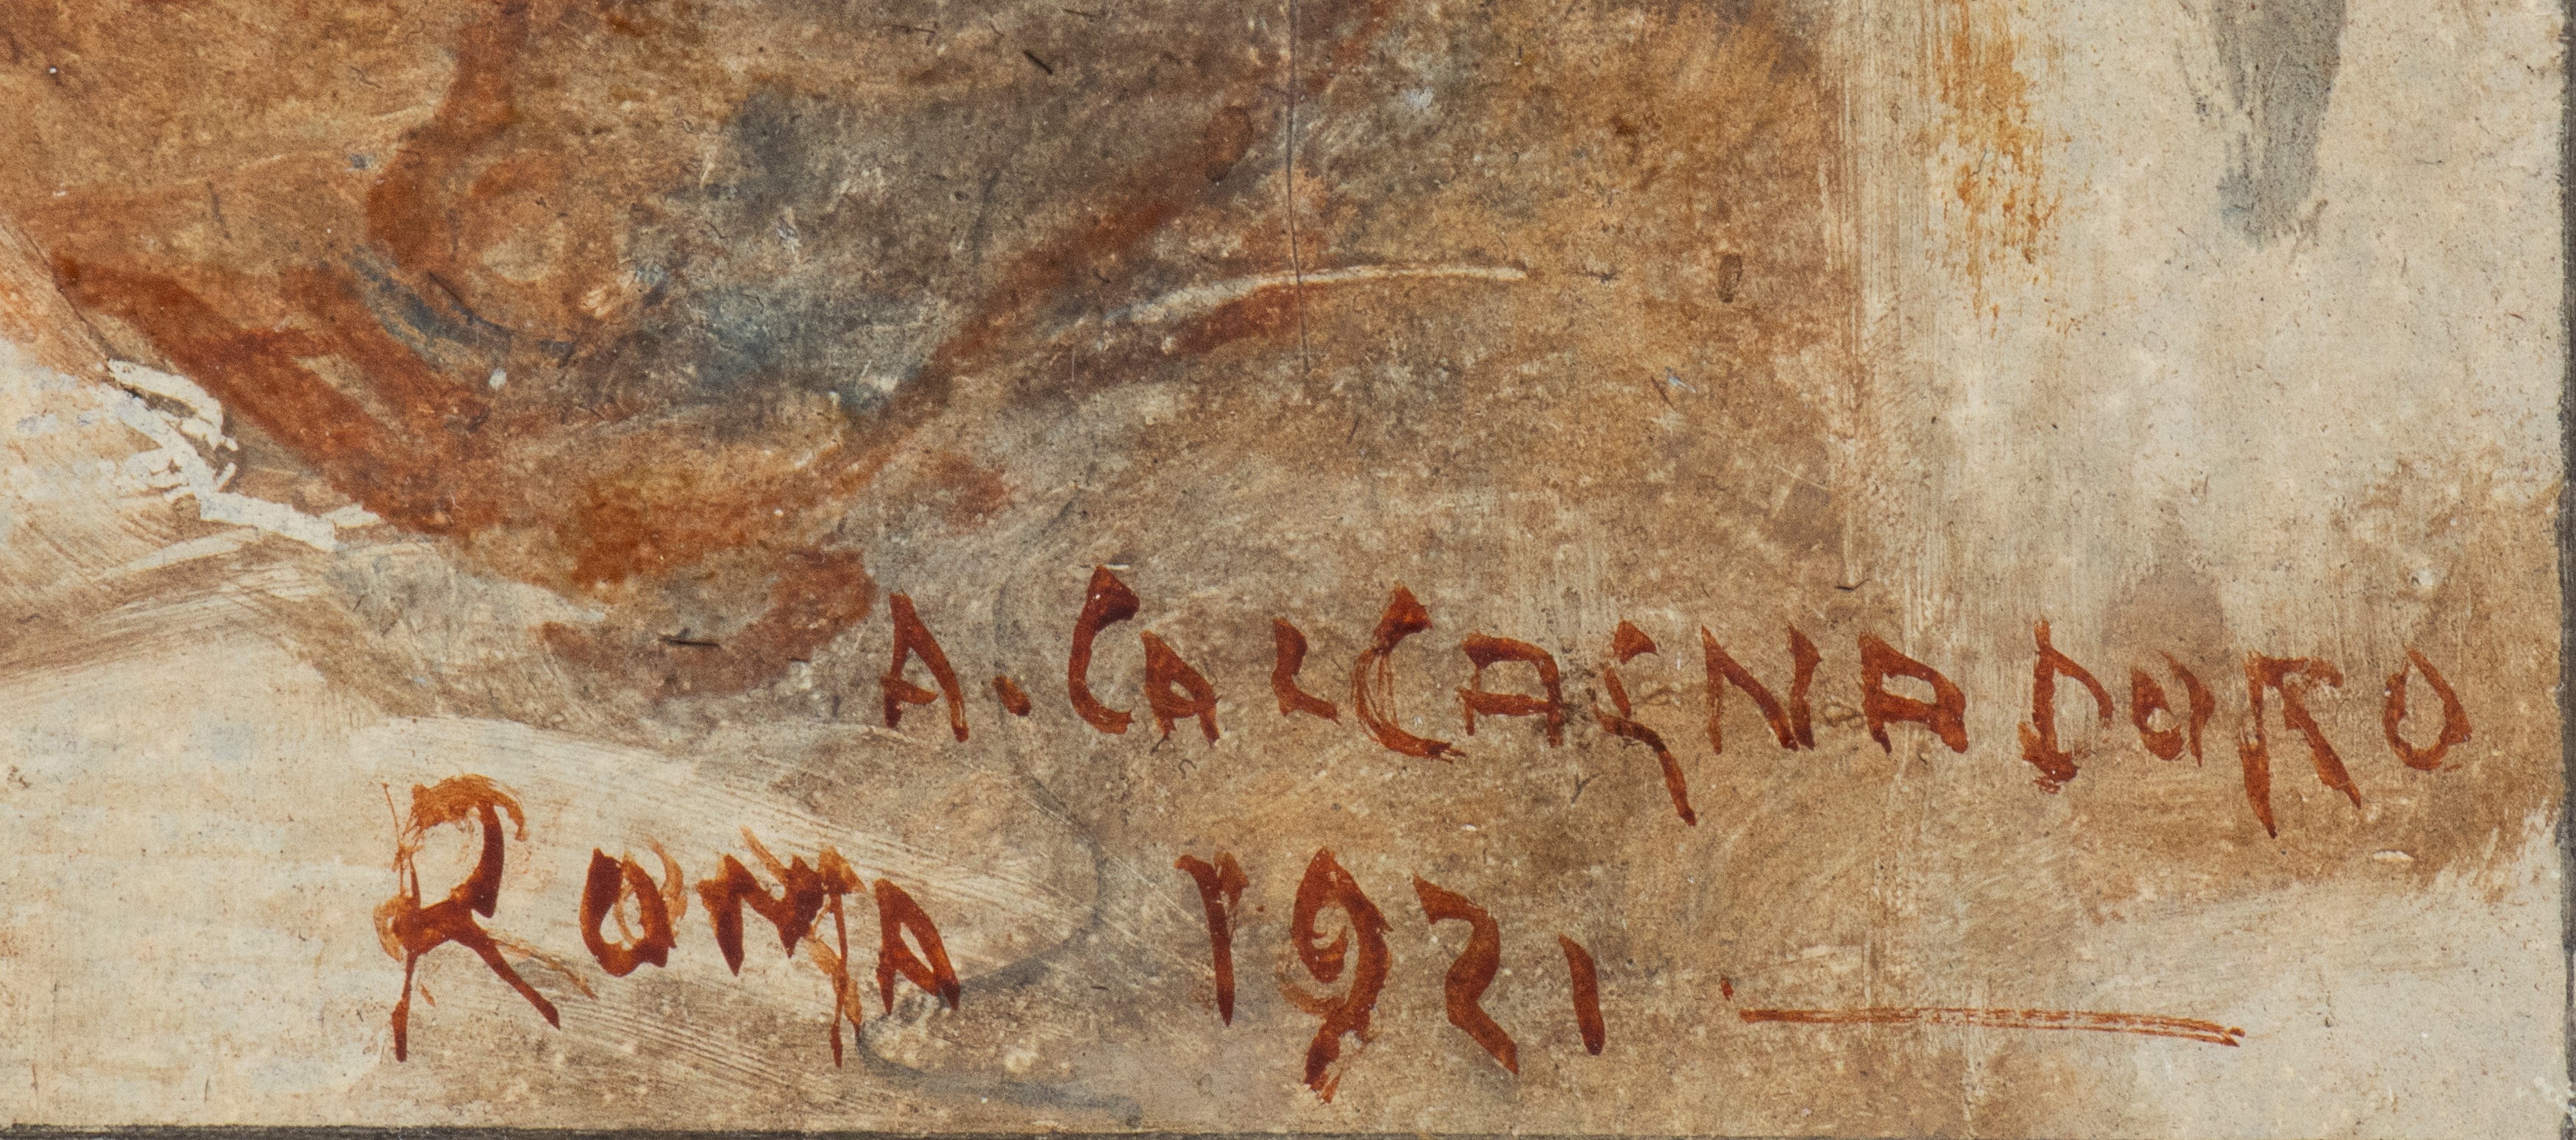 A. CALCAGNADORO
ROMA 1921